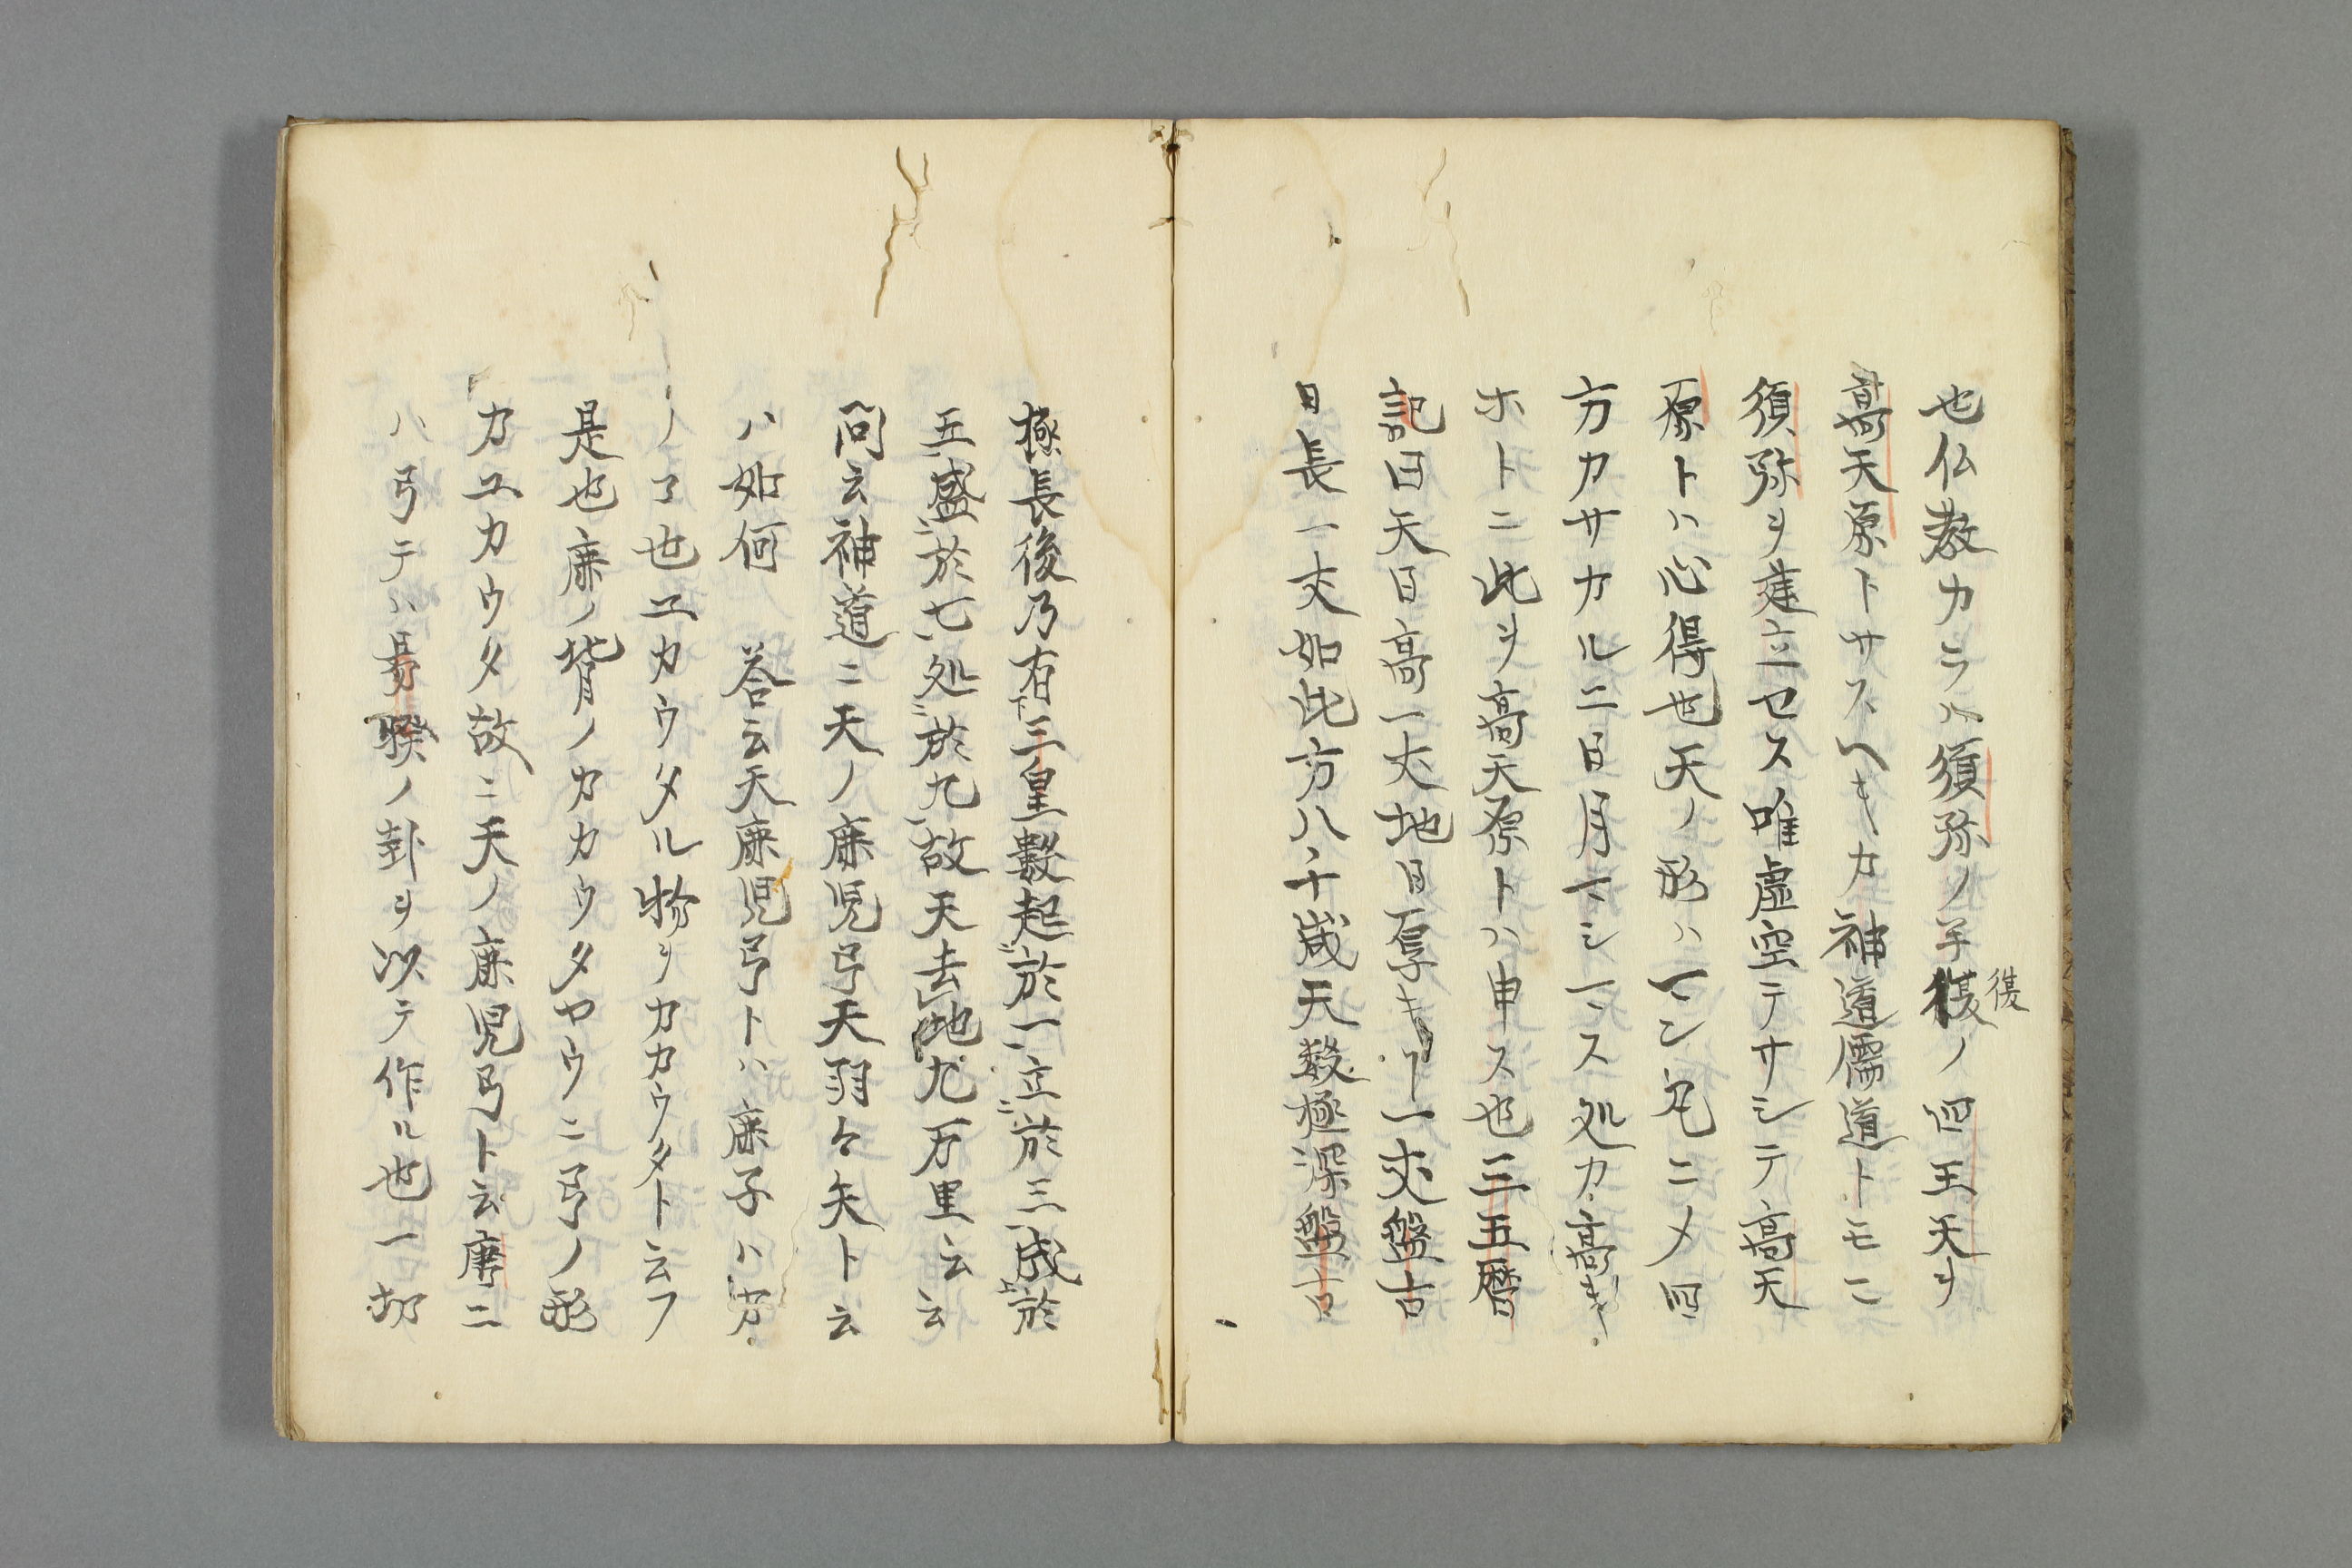 也仏教カラハ須弥ノ半復ノ四王天ヲ
復
高天原トサスヘキカ神道儒道トモニ
須弥ヲ建立セス唯虚空ヲサシテ高天
原トハ心得也天ノ形ハマン丸ニメ四
方カサカルニ日月マシマス処カ高キ
ホトニ此ヲ高天原トハ申ス也三五暦
記曰天日高一丈地日厚キヿ一丈盤古
日長一丈如此万八千歳天数極深盤古
極長後乃有三皇數起於一立於三成於
五盛於七処於九故天去地九万里云云
問云神道ニ天ノ麻児弓天羽々矢ト云
ハ如何 答云天麻児弓トハ麻子ハカ
ノコ也ユカウタル物ヲカカウタト云フ
是也麻ノ背ノカカウタヤウニ弓ノ形
カユカウタ故ニ天ノ麻児弓ト云唐ニ
ハ弓テハ易睽ノ卦ヲ以テ作ル也一切